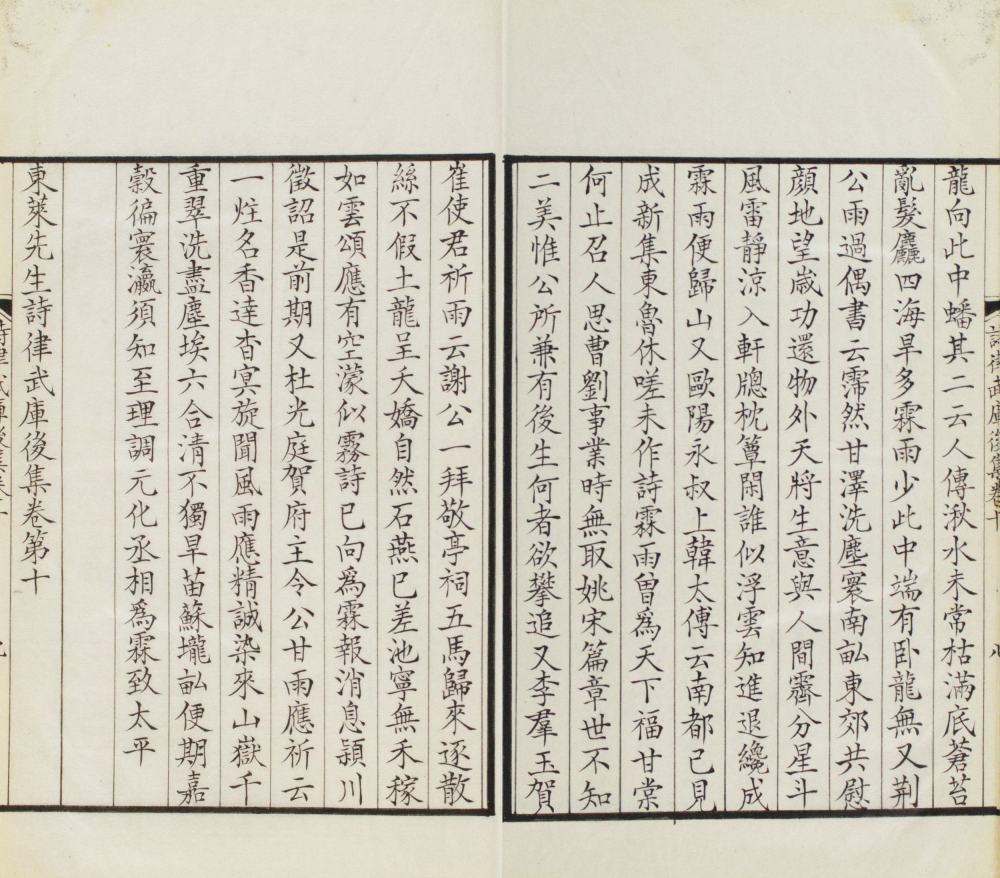 龍向此中蟠其二云人傳湫水未常枯滿底蒼苔
亂髮麤四海旱多霖雨少此中端有卧龍無又荆
公雨過偶書云霈然甘澤洗塵寰南畆東郊共慰
顔地望歲功還物外天將生意與人間霽分星斗
風雷靜涼入軒牕枕簟閑誰似浮雲知進退纔成
霖雨便歸山又歐陽永叔上韓太傅云南都已見
成新集東魯休嗟未作詩霖雨曾爲天下福甘棠
何止召人思曹劉事業時無取姚宋篇章世不知
二美惟公所兼有後生何者欲攀追又李羣玉賀
崔使君祈雨云謝公一拜敬亭祠五馬歸來逐散
絲不假土龍呈夭嬌自然石燕已差池寧無禾稼
如雲頌應有空濛似霧詩已向爲霖報消息潁川
徵詔是前期又杜光庭賀府主令公甘雨應祈云
一炷名香達杳冥旋聞風雨應精誠染來山嶽千
重翠洗盡塵埃六合清不獨旱苗蘇壠畆便期嘉
穀徧寰瀛須知至理調元化丞相爲霖致太平
東萊先生詩律武庫後集卷第十